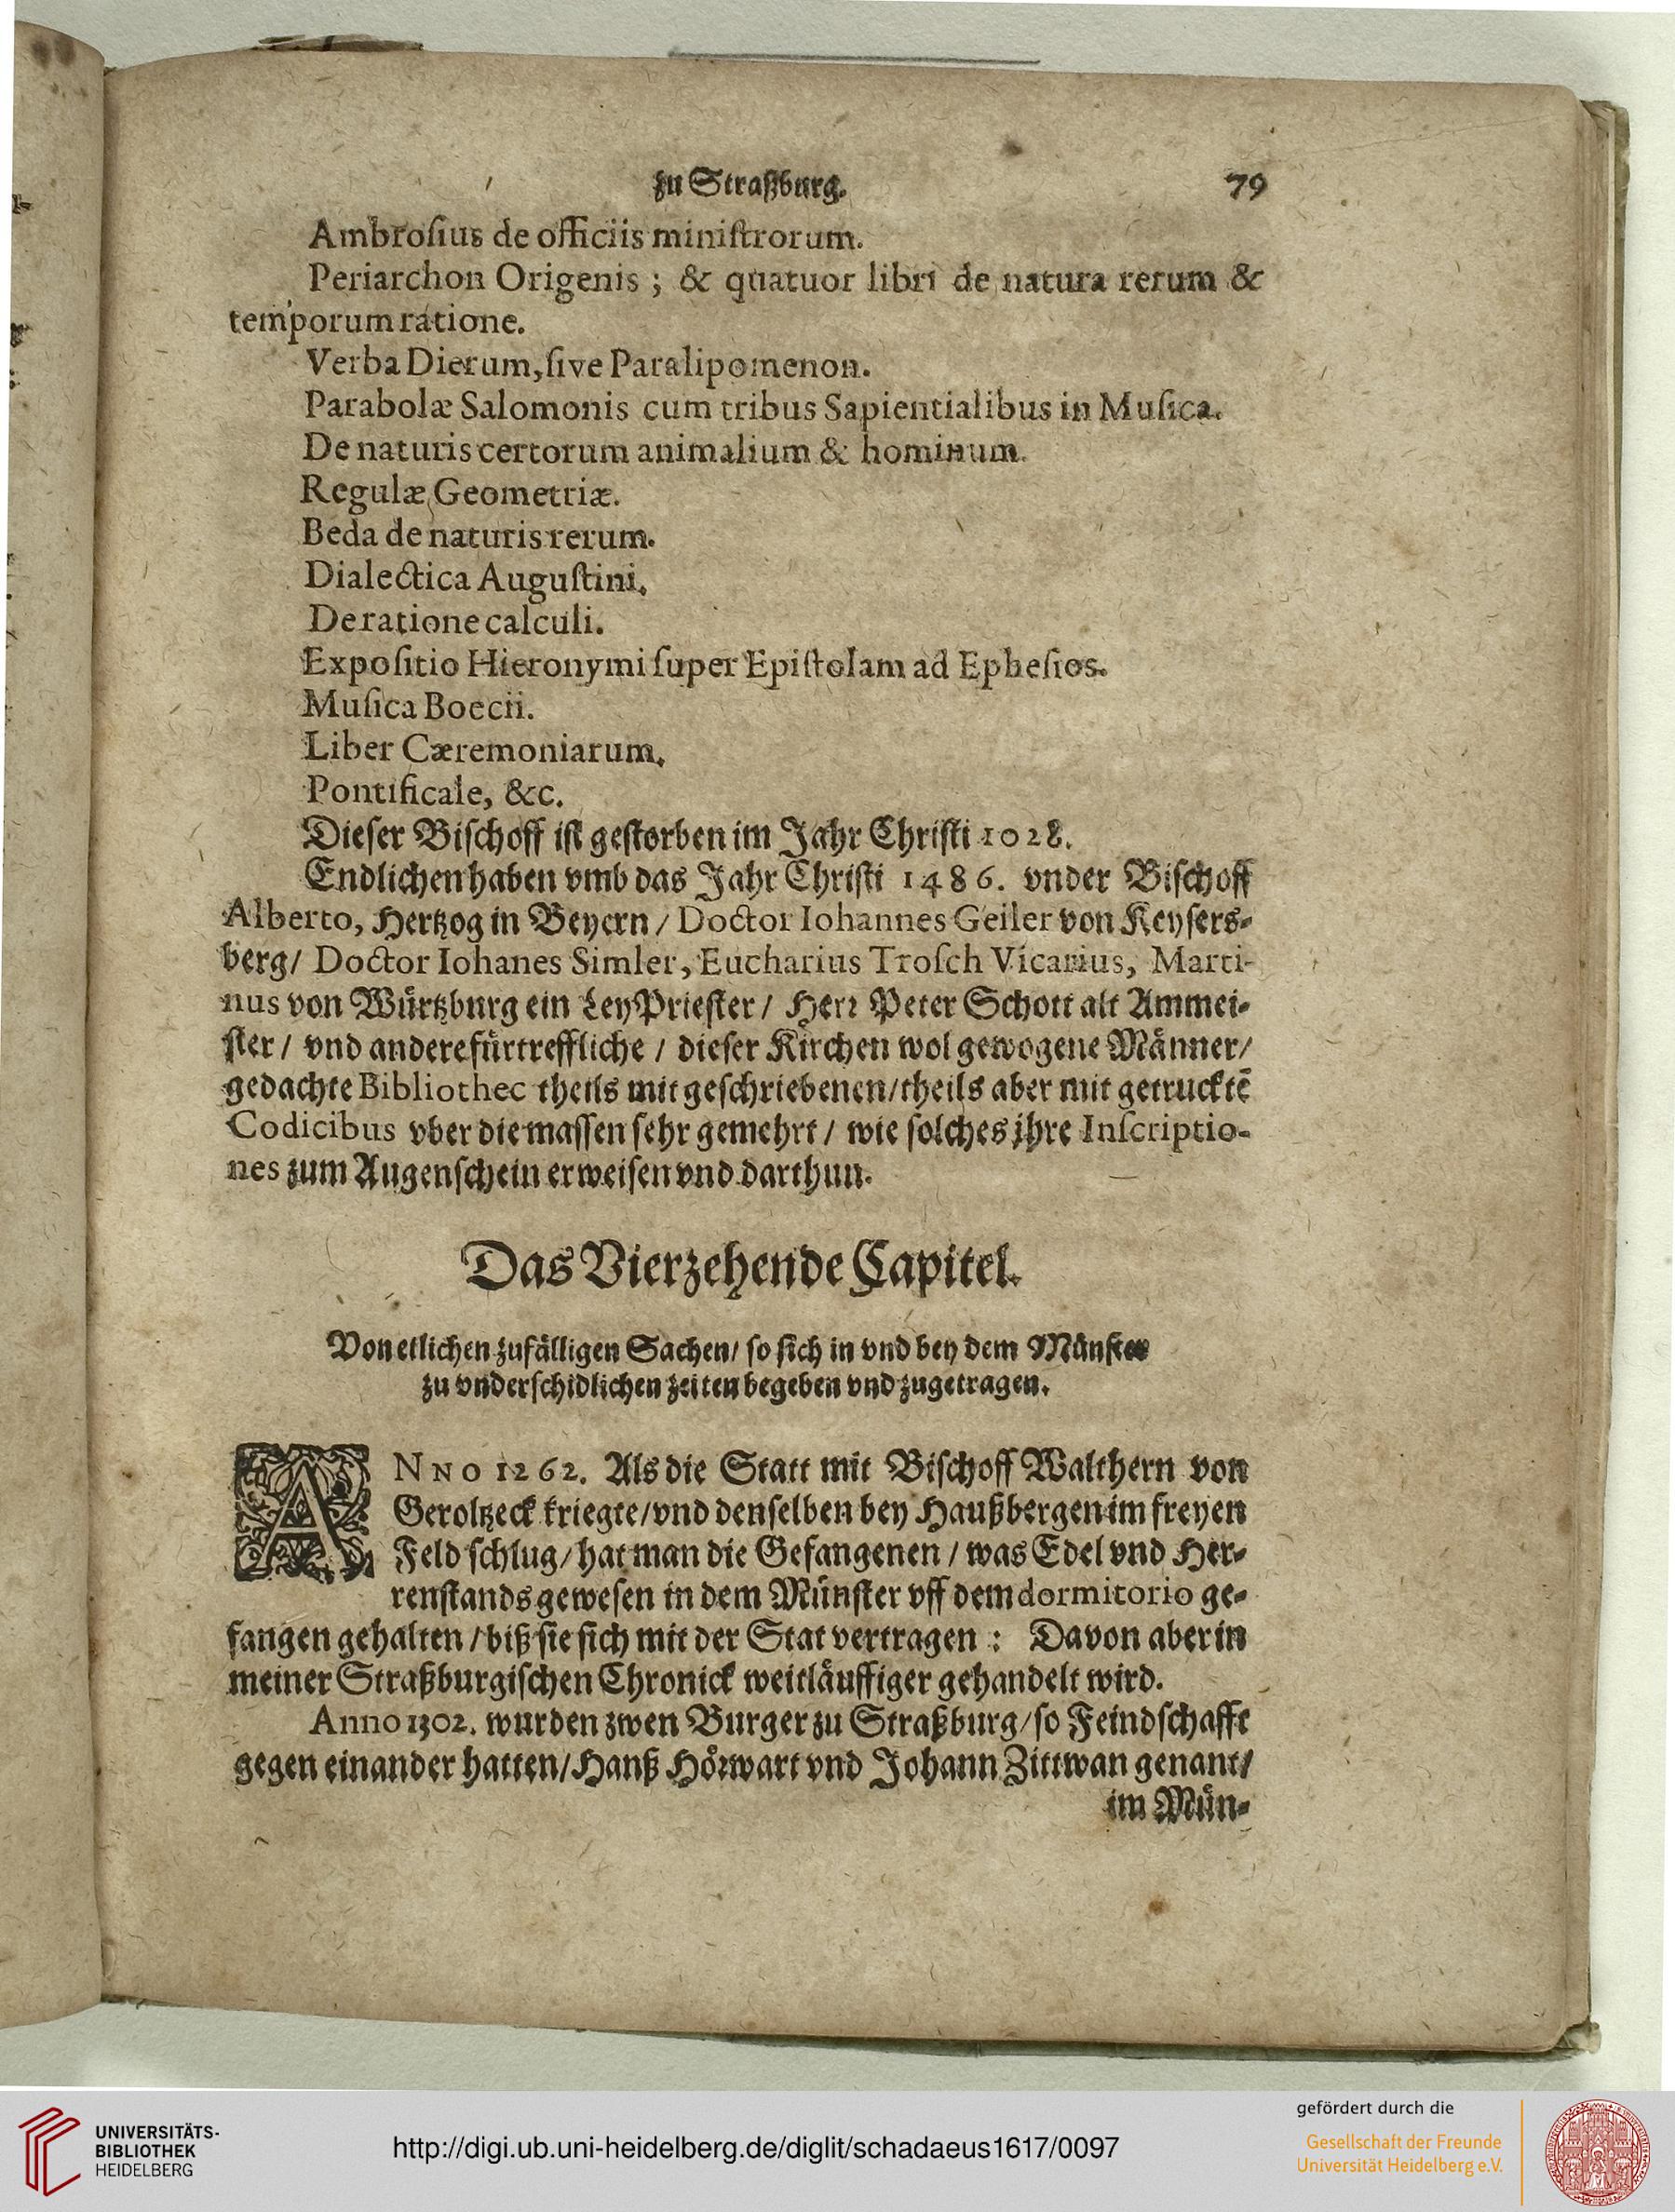 zu Straßburg. 79
Ambroſius de officiis miniſtrorum.
Periarchon Origenis ; & quatuor libri de natura rerum &
temporum ratione.
Verba Dierum, ſive Paralipomenon.
Parabolæ Salomonis cum tribus Sapientialibus in Muſica.
De naturis certorum animalium & hominum.
Regulæ Geometriæ.
Beda de naturis rerum.
Dialectica Auguſtini.
De ratione calculi.
Expoſitio Hieronymi ſuper Epiſtolam ad Epheſios.
Muſica Boecii.
Liber Cæremoniarum.
Pontificale, &c.
Dieſer Biſchoff iſt geſtorben im Jahr Chriſti 1028.
Endlichen haben vmb das Jahr Chriſti 1486. vnder Biſchoff
Alberto, Hertzog in Beyern / Doctor Iohannes Geiler von Keyſers-
berg / Doctor Iohanes Simler, Eucharius Troſch Vicarius, Marti-
nus von Würtzburg ein LeyPrieſter / Herr Peter Schott alt Ammei-
ſter / vnd andere fürtreffliche / dieſer Kirchen wol gewogene Männer /
gedachte Bibliothec theils mit geſchriebenen / theils aber mit getrucktē
Codicibus vber die maſſen ſehr gemehrt / wie ſolches jhre Inſcriptio-
nes zum Augenſchein erweiſen vnd darthun.
Das Vierzehende Capitel.
Von etlichen zufälligen Sachen / ſo ſich in vnd bey dem Münſter
zu vnderſchidlichen zeiten begeben vnd zugetragen.
ANNO 1262. Als die Statt mit Biſchoff Walthern von
Geroltzeck kriegte / vnd denſelben bey Haußbergen im freyen
Feld ſchlug / hat man die Gefangenen / was Edel vnd Her-
renſtands geweſen in dem Münſter vff dem dormitorio ge-
fangen gehalten / biß ſie ſich mit der Stat vertragen : Davon aber in
meiner Straßburgiſchen Chronick weitläuffiger gehandelt wird.
Anno 1302. wurden zwen Burger zu Straßburg / ſo Feindſchafft
gegen einander hatten / Hanß Hörwart vnd Johann Zittwan genant /
im Mün-
UNIVERSITÄTS-
BIBLIOTHEK
HEIDELBERG
http://digi.ub.uni-heidelberg.de/diglit/schadaeus1617/0097
gefördert durch die
Gesellschaft der Freunde
Universität Heidelberg e.V.